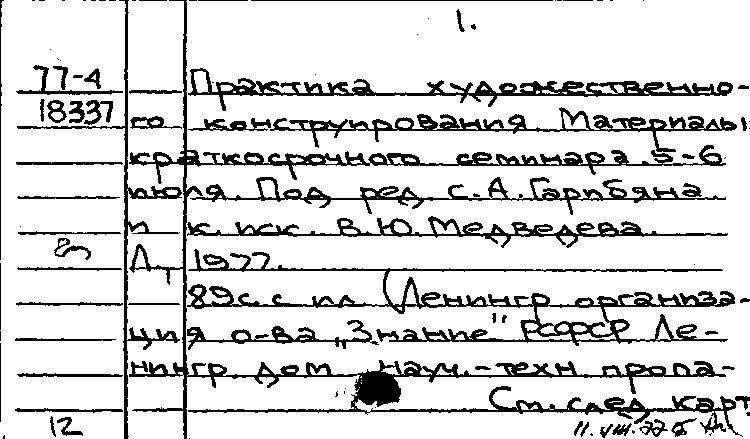 1.
77-4 Практика художественно-
18337 го конструирования. Материалы
краткосрочного семинара. 5-6
июля. Под ред. С. А. Гарибяна
и к. иск. В. Ю. Медведева.
Л., 1977.
89 с. с ил. (Ленингр организа-
ция о-ва „Знание" РСФСР Ле-
нингр. дом науч.-техн. пропа-
См. след. карт
12 11.VIII.77